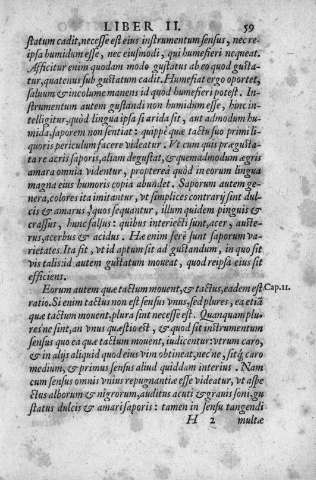 LIBER II. 59
statum cadit, necesse est eius instrumentum sensus, nec re-
ipsa humidum esse, nec eiusmodi, qui humefieri nequeat.
Afficitur enim quodam modo gustatus ab eo quod gusta-
tur, quatenus sub gustatum cadit. Humefiat ergo oportet,
saluum & incolume manens id quod humefieri potest. In-
strumentum autem gustandi non humidum esse, hinc in-
telligitur, quòd lingua ipsa si arida sit, aut admodum hu-
mida, saporem non sentiat: quippè quæ tactu suo primi li-
quoris periculum facere videatur. Vt cum quis prægusta-
ta re acris saporis, aliam degustat, & quemadmodum ægris
amara omnia videntur, propterea quòd in eorum lingua
magna eius humoris copia abundet. Saporum autem ge-
nera, colores ita imitantur, vt simplices contrarij sint dul-
cis & amarus, hos sequantur, illum quidem pinguis &
crassus, hunc salsus: quibus interiecti sunt, acer, auste-
rus, acerbus & acidus. Hæ enim ferè sunt saporum va-
rietates. Ita sit, vt id aptum sit ad gustandum, in quo sit
vis talis: id autem gustatum moueat, quod reipsa eius sit
efficiens.
Eorum autem quæ tactum mouent, & tactus, eadem est Cap. 11.
ratio. Si enim tactus non est sensus vnus, sed plures, ea etiã
quæ tactum mouent, plura sint necesse est. Quanquam plu-
res ne sint, an vnus quæstio est, & quod sit instrumentum
sensus quo ea quæ tactum mouent, iudicentur: vtrum caro,
& in alijs aliquid quod eius vim obtineat, nec ne, sitq́; caro
medium, & primus sensus aliud quiddam interius. Nam
cum sensus omnis vnius repugnantiæ esse videatur, vt aspe
ctus alborum & nigrorum, auditus acuti & grauis soni, gu
status dulcis & amari saporis: tamen in sensu tangendi
H 2 multæ